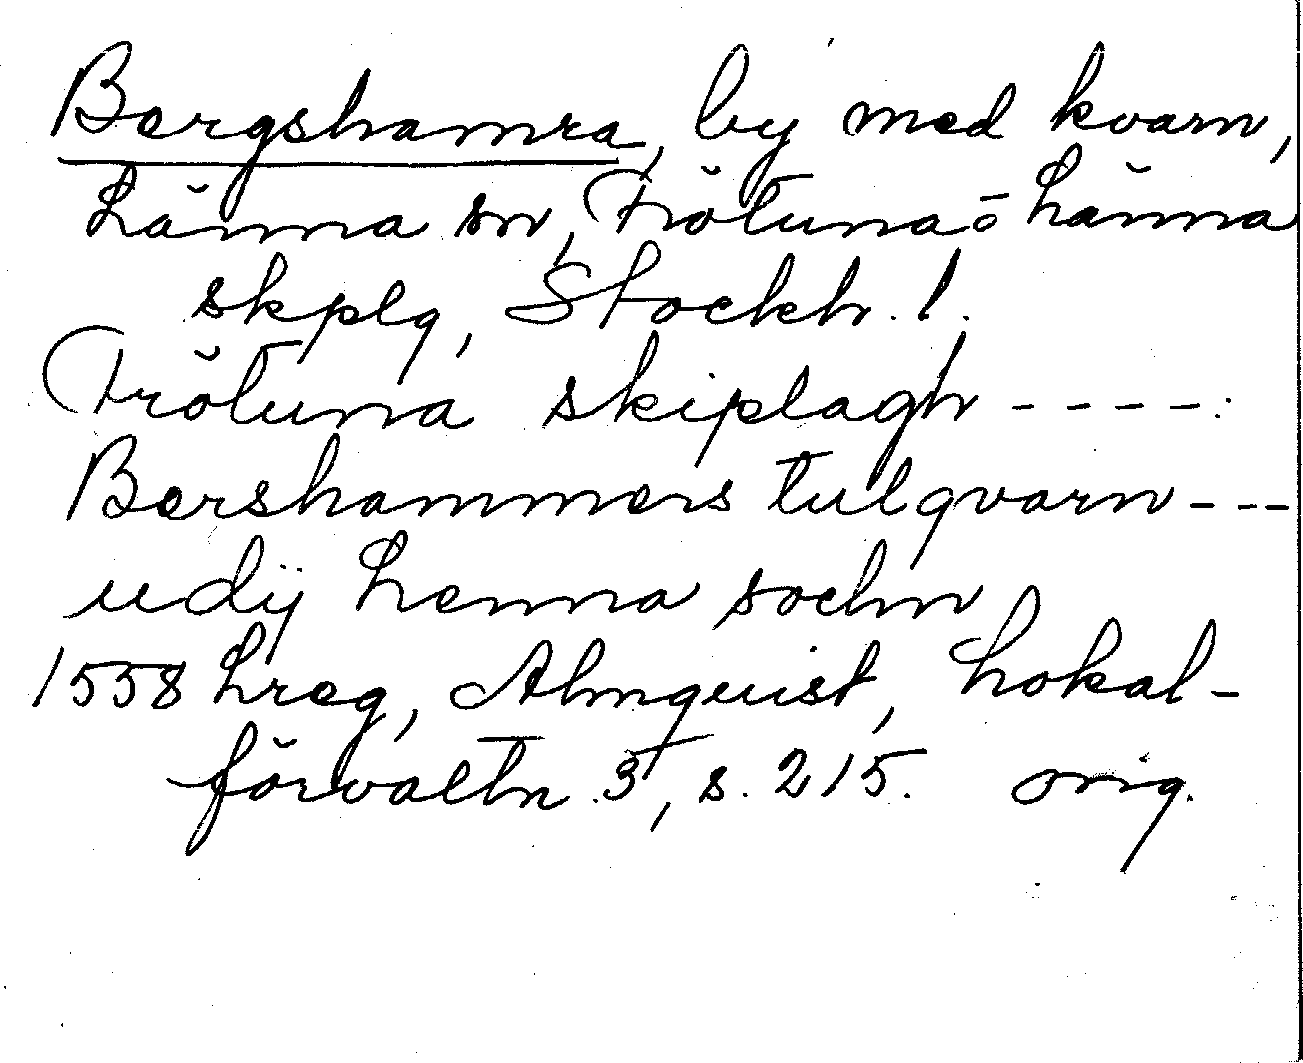 Bergshamra, by med kvarn,
Länna sn, Frötuna o Länna
skplg, Stockh. l.
Frötuna skiplagh ----:
Bershammers tulqvarn ---
udij Lenna sochn
1558 Lreg, Almquist, Lokal-
förvaltn 3, s. 215. orig.